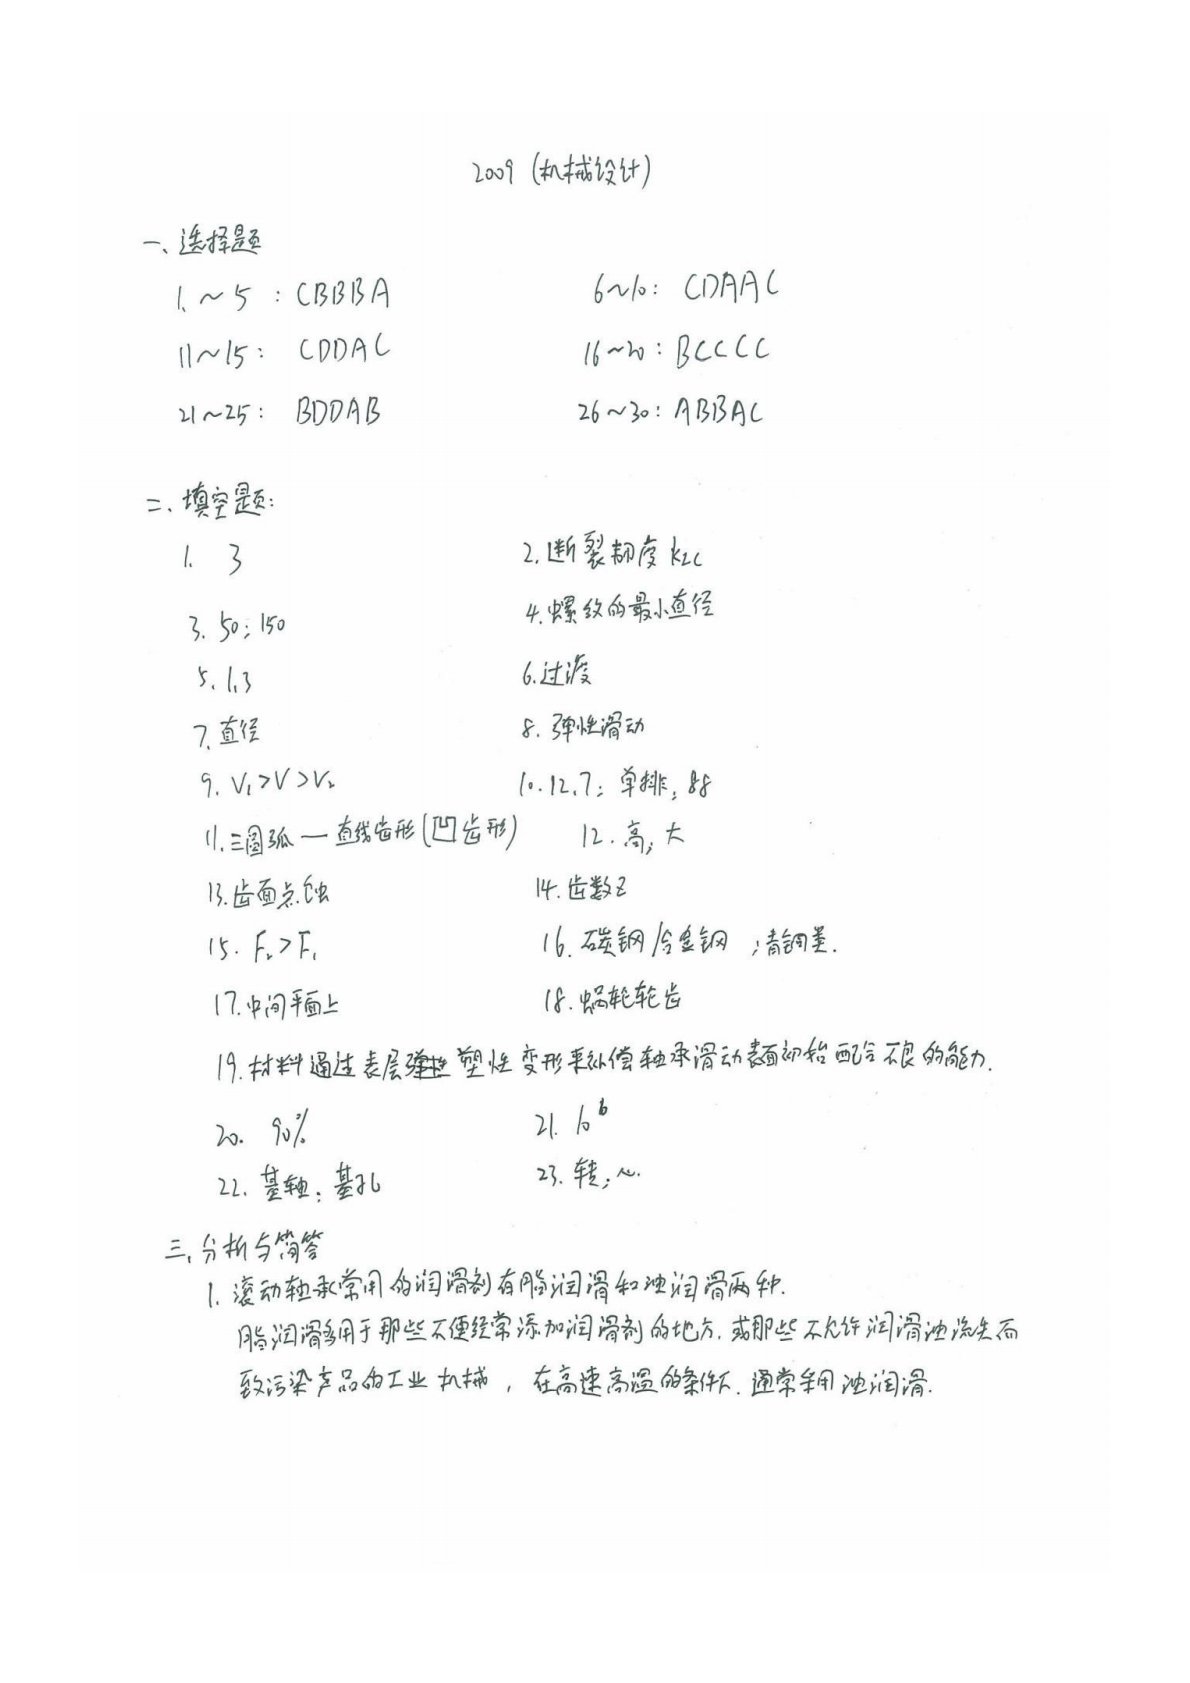 2009 (机械设计)
一、选择题
1~5: CBBBA 6~10: CDAAC
11~15: CDDAC 16~20: BCCCC
21~25: BDDAB 26~30: ABBAC
二、填空题:
1. 3 2. 断裂韧度 KIC
3. 50; 150 4. 螺纹的最小直径
5. 1.3 6. 过渡
7. 直径 8. 弹性滑动
9. V1>V>V2 10. 12.7; 单排; 88
11. 三圆弧一直线齿形(凹齿形) 12. 高; 大
13. 齿面点蚀 14. 齿数Z
15. F2>F1 16. 碳钢/合金钢 ;青铜类.
17. 中间平面上 18. 蜗轮轮齿
19. 材料通过表层塑性变形来补偿轴承滑动表面初始配合不良的能力.
20. 90% 21. 10^6
22. 基轴; 基孔 23. 转; 心.
三、分析与简答
1. 滚动轴承常用的润滑剂有脂润滑和油润滑两种.
脂润滑多用于那些不便经常添加润滑剂的地方.或那些不允许润滑油流失而
致污染产品的工业机械，在高速高温的条件下.通常采用油润滑.